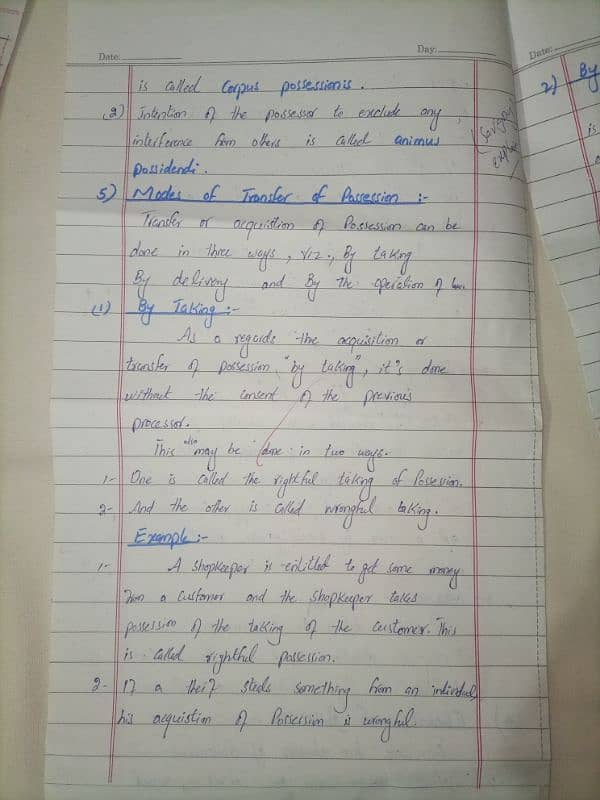 Date: Day: Date:
is called Corpus possessionis.
(2) Intention of the possessor to exclude any
interference from others is called animus
possidendi.
(Savigny
2) By
is
5) Modes of Transfer of Possession :-
Transfer or acquistion of Possession can be
done in three ways, viz., By taking
By delivery and By the operation of law.
(1) By Taking :-
As a regards the acquisition or
transfer of possession "by taking", it's done
without the consent of the previous
processor.
This also may be done in two ways.
1- One is called the rightful taking of Possesion.
2- And the other is called wrongful taking.
Example :-
1- A shopkeeper is entitled to get some money
from a customer and the shopkeeper takes
possession of the taking of the customer. This
is called rightful possession.
2- If a theif steals something from an individual,
his acquistion of Possession is wrongful.